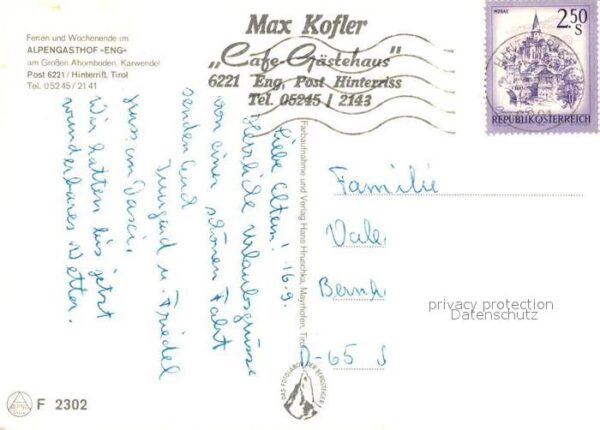 Ferien und Wochenende im
ALPENGASTHOF »ENG«
am Großen Ahornboden, Karwendel
Post 6221 / Hinterriß, Tirol
Tel. 05245 / 21 41
Max Kofler
„Cafe-Gästehaus"
6221 Eng, Post Hinterriss
Tel. 05245 / 2143
MURAU
2.50
S
REPUBLIK ÖSTERREICH
Liebe Eltern! 16.9.
Herzliche Urlaubsgrüsse
von einer schönen Fahrt
senden Euch
Irmgard u. Friedel
Wir hatten bis jetzt
wunderbares Wetter.
Farbaufnahme und Verlag Hans Hruschka, Mayrhofen, Tirol
Familie
Bernh.
D-65
privacy protection
Datenschutz
DAS FOTOLABOR DER BERGSTEIGER
F 2302